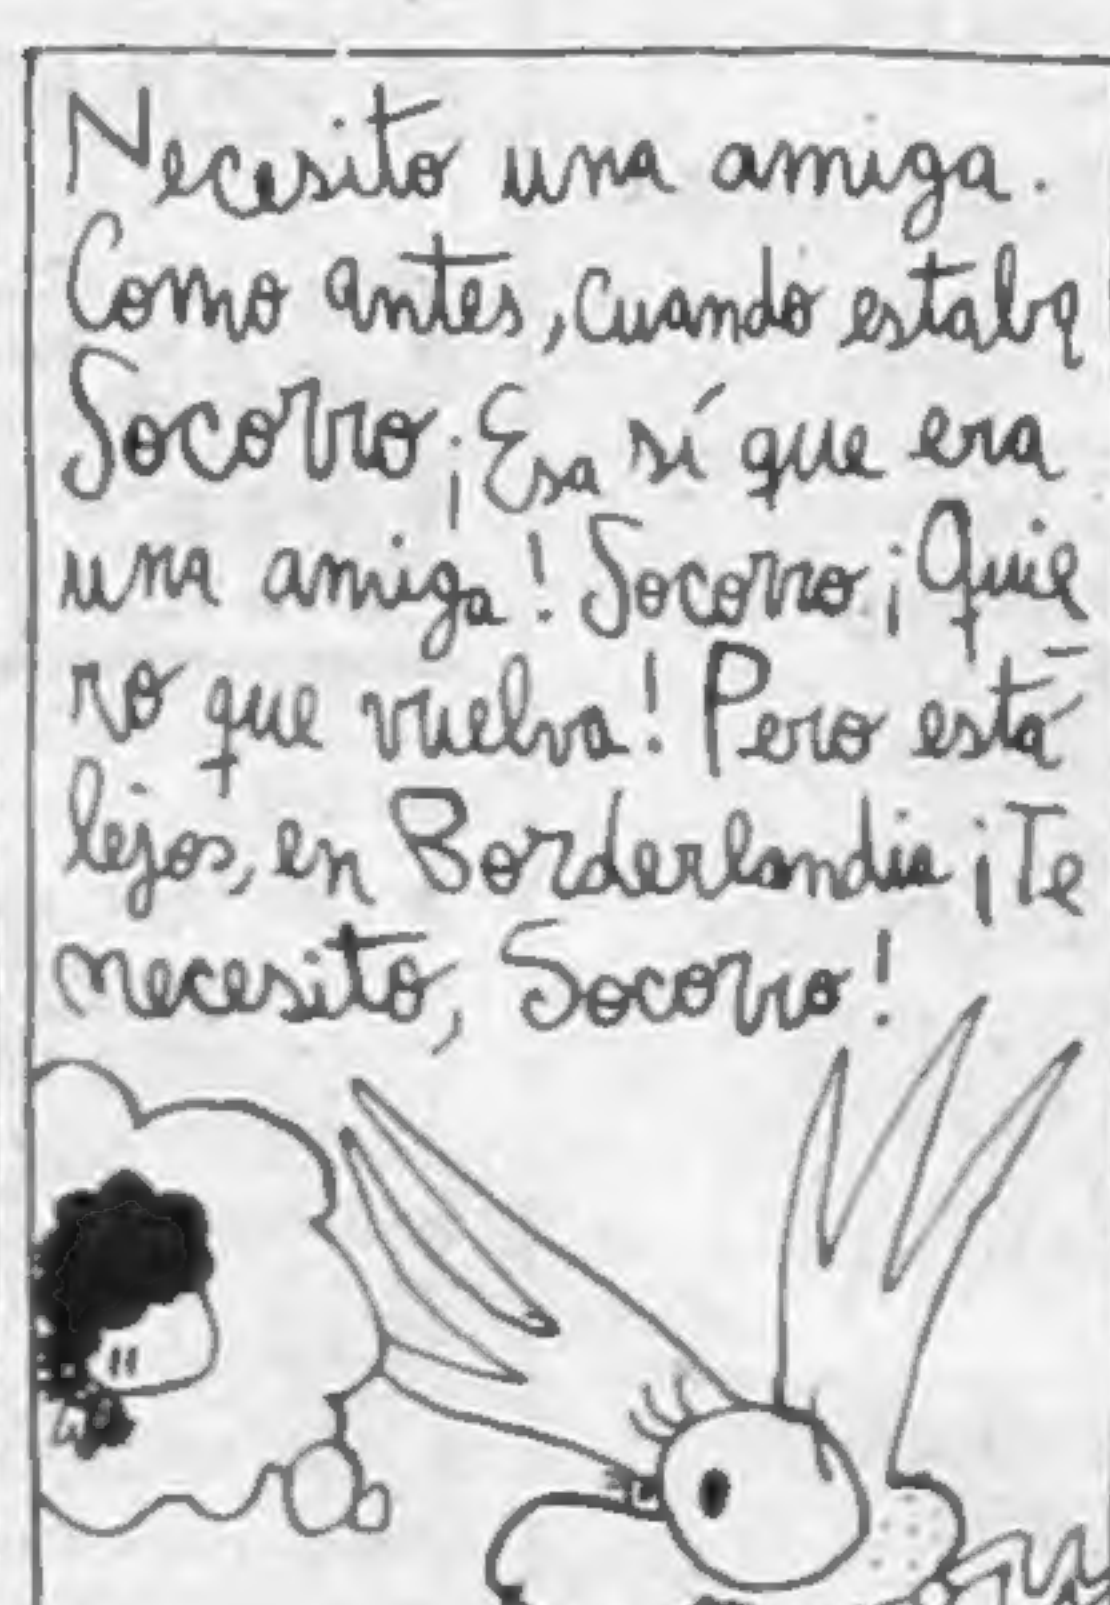 Necesito una amiga.
Como antes, cuando estaba
Socorro ¡Esa sí que era
una amiga! Socorro ¡Quie
ro que vuelva! Pero está
lejos, en Borderlandia ¡Te
necesito, Socorro!